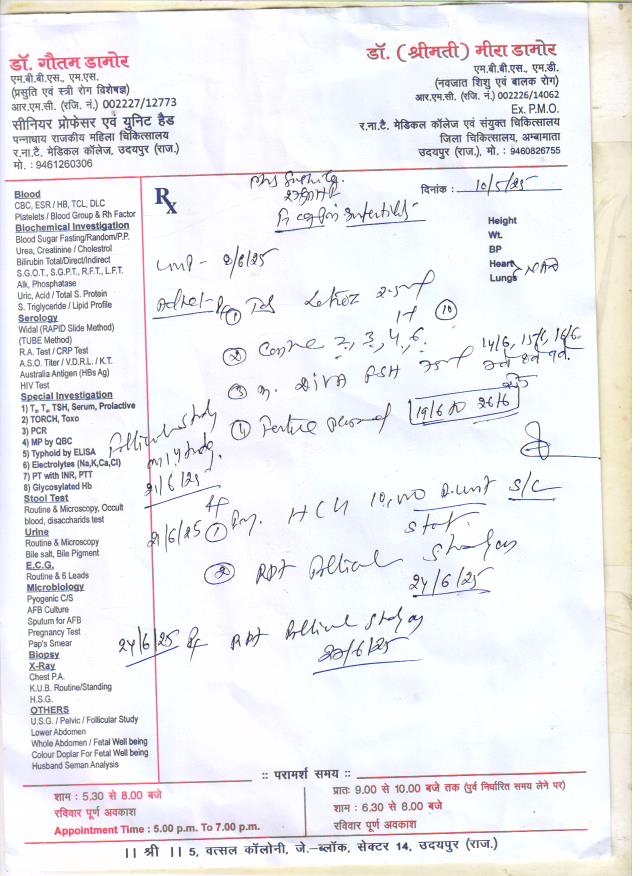 डॉ. गौतम डामोर
एम.बी.बी.एस., एम.एस.
(प्रसुति एवं स्त्री रोग विशेषज्ञ)
आर.एम.सी. (रजि. नं.) 002227/12773
सीनियर प्रोफेसर एवं यूनिट हैड
पन्नाधाय राजकीय महिला चिकित्सालय
र.ना.टै. मेडिकल कॉलेज, उदयपुर (राज.)
मो. : 9461260306
डॉ. (श्रीमती) मीरा डामोर
एम.बी.बी.एस., एम.डी.
(नवजात शिशु एवं बालक रोग)
आर.एम.सी. (रजि. नं.) 002226/14062
Ex. P.M.O.
र.ना.टै. मेडिकल कॉलेज एवं संयुक्त चिकित्सालय
जिला चिकित्सालय, अम्बामाता
उदयपुर (राज.), मो. : 9460826755
Blood
CBC, ESR / HB, TCL, DLC
Platelets / Blood Group & Rh Factor
Biochemical Investigation
Blood Sugar Fasting/Random/P.P.
Urea, Creatinine / Cholestrol
Bilirubin Total/Direct/Indirect
S.G.O.T., S.G.P.T., R.F.T., L.F.T.
Alk, Phosphatase
Uric, Acid / Total S. Protein
S. Triglyceride / Lipid Profile
Serology
Widal (RAPID Slide Method)
(TUBE Method)
R.A. Test / CRP Test
A.S.O. Titer / V.D.R.L. / K.T.
Australia Antigen (HBs Ag)
HIV Test
Special Investigation
1) T₃, T₄, TSH, Serum, Prolactive
2) TORCH, Toxo
3) PCR
4) MP by QBC
5) Typhoid by ELISA
6) Electrolytes (Na,K,Ca,Cl)
7) PT with INR, PTT
8) Glycosylated Hb
Stool Test
Routine & Microscopy, Occult
blood, disaccharids test
Urine
Routine & Microscopy
Bile salt, Bile Pigment
E.C.G.
Routine & 6 Leads
Microbiology
Pyogenic C/S
AFB Culture
Sputum for AFB
Pregnancy Test
Pap's Smear
Biopsy
X-Ray
Chest P.A.
K.U.B. Routine/Standing
H.S.G.
OTHERS
U.S.G. / Pelvic / Follicular Study
Lower Abdomen
Whole Abdomen / Fetal Well being
Colour Doplar For Fetal Well being
Husband Seman Analysis
Rx
दिनांक : 10/5/25
Height
Wt.
BP
Heart
Lungs NAD
Infertility
LMP - 2/6/25
① Letroz
⑩
② 2, 3, 4, 6. 14/6, 15/6, 16/6
③ FSH
④ 19/6 to 26/6
Follicular study
21/6/25
21/6/25 ① Inj. HCG 10,000 unit S/C
stat.
② Follical study on
24/6/25
24/6/25 Follical study on
:: परामर्श समय ::
शाम : 5.30 से 8.00 बजे
रविवार पूर्ण अवकाश
Appointment Time : 5.00 p.m. To 7.00 p.m.
प्रातः 9.00 से 10.00 बजे तक (पुर्व निर्धारित समय लेने पर)
शाम : 6.30 से 8.00 बजे
रविवार पूर्ण अवकाश
।। श्री ।। 5, वत्सल कॉलोनी, जे.–ब्लॉक, सेक्टर 14, उदयपुर (राज.)